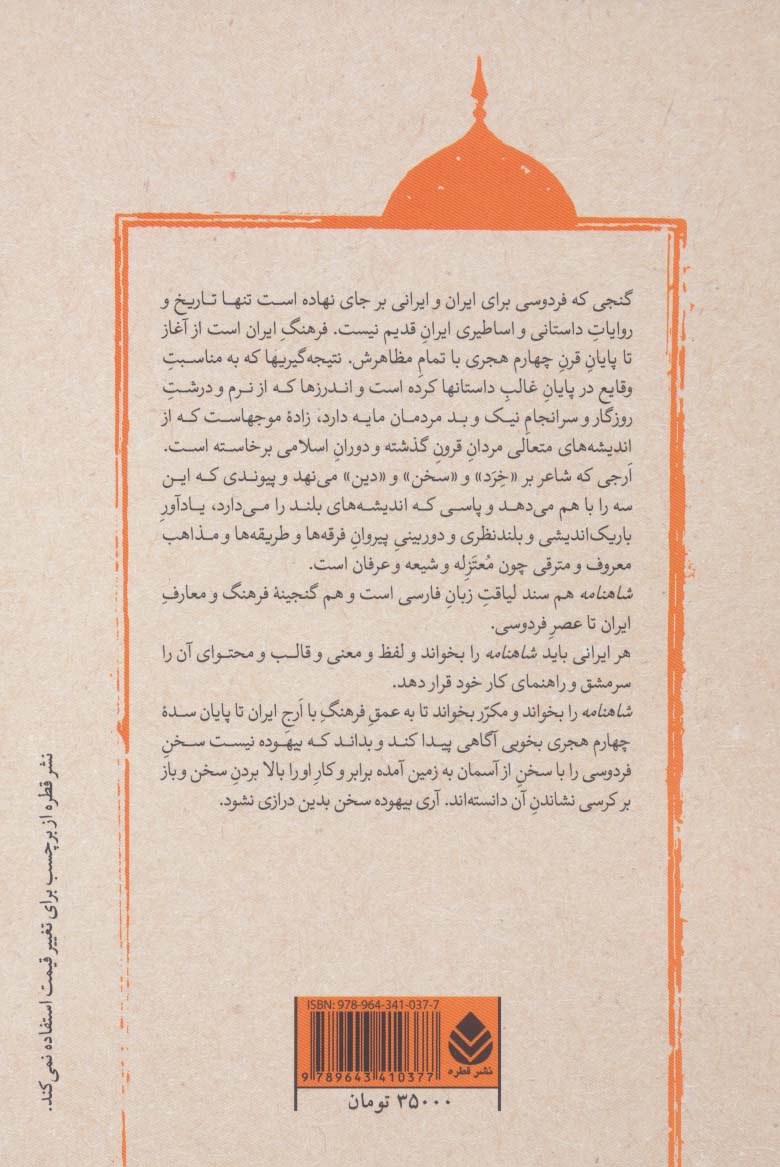 گنجی که فردوسی برای ایران و ایرانی بر جای نهاده است تنها تاریخ و
روایاتِ داستانی و اساطیری ایرانِ قدیم نیست. فرهنگِ ایران است از آغاز
تا پایانِ قرنِ چهارم هجری با تمامِ مظاهرش. نتیجه‌گیریها که به مناسبتِ
وقایع در پایانِ غالبِ داستانها کرده است و اندرزها که از نرم و درشتِ
روزگار و سرانجامِ نیک و بد مردمان مایه دارد، زادهٔ موجهاست که از
اندیشه‌های متعالی مردانِ قرونِ گذشته و دورانِ اسلامی برخاسته است.
اَرجی که شاعر بر «خِرَد» و «سخن» و «دین» می‌نهد و پیوندی که این
سه را با هم می‌دهد و پاسی که اندیشه‌های بلند را می‌دارد، یادآورِ
باریک‌اندیشی و بلندنظری و دوربینیِ پیروانِ فرقه‌ها و طریقه‌ها و مذاهب
معروف و مترقی چون مُعتَزِله و شیعه و عرفان است.
شاهنامه هم سند لیاقتِ زبانِ فارسی است و هم گنجینهٔ فرهنگ و معارفِ
ایران تا عصرِ فردوسی.
هر ایرانی باید شاهنامه را بخواند و لفظ و معنی و قالب و محتوای آن را
سرمشق و راهنمای کار خود قرار دهد.
شاهنامه را بخواند و مکرّر بخواند تا به عمقِ فرهنگِ با اَرجِ ایران تا پایان سدهٔ
چهارم هجری بخوبی آگاهی پیدا کند و بداند که بیهوده نیست سخنِ
فردوسی را با سخنِ از آسمان به زمین آمده برابر و کارِ او را بالا بردنِ سخن و باز
بر کرسی نشاندنِ آن دانسته‌اند. آری بیهوده سخن بدین درازی نشود.
نشر قطره از برچسب برای تغییر قیمت استفاده نمی‌کند.
ISBN: 978-964-341-037-7
9 789643 410377
نشر قطره
۳۵۰۰۰ تومان